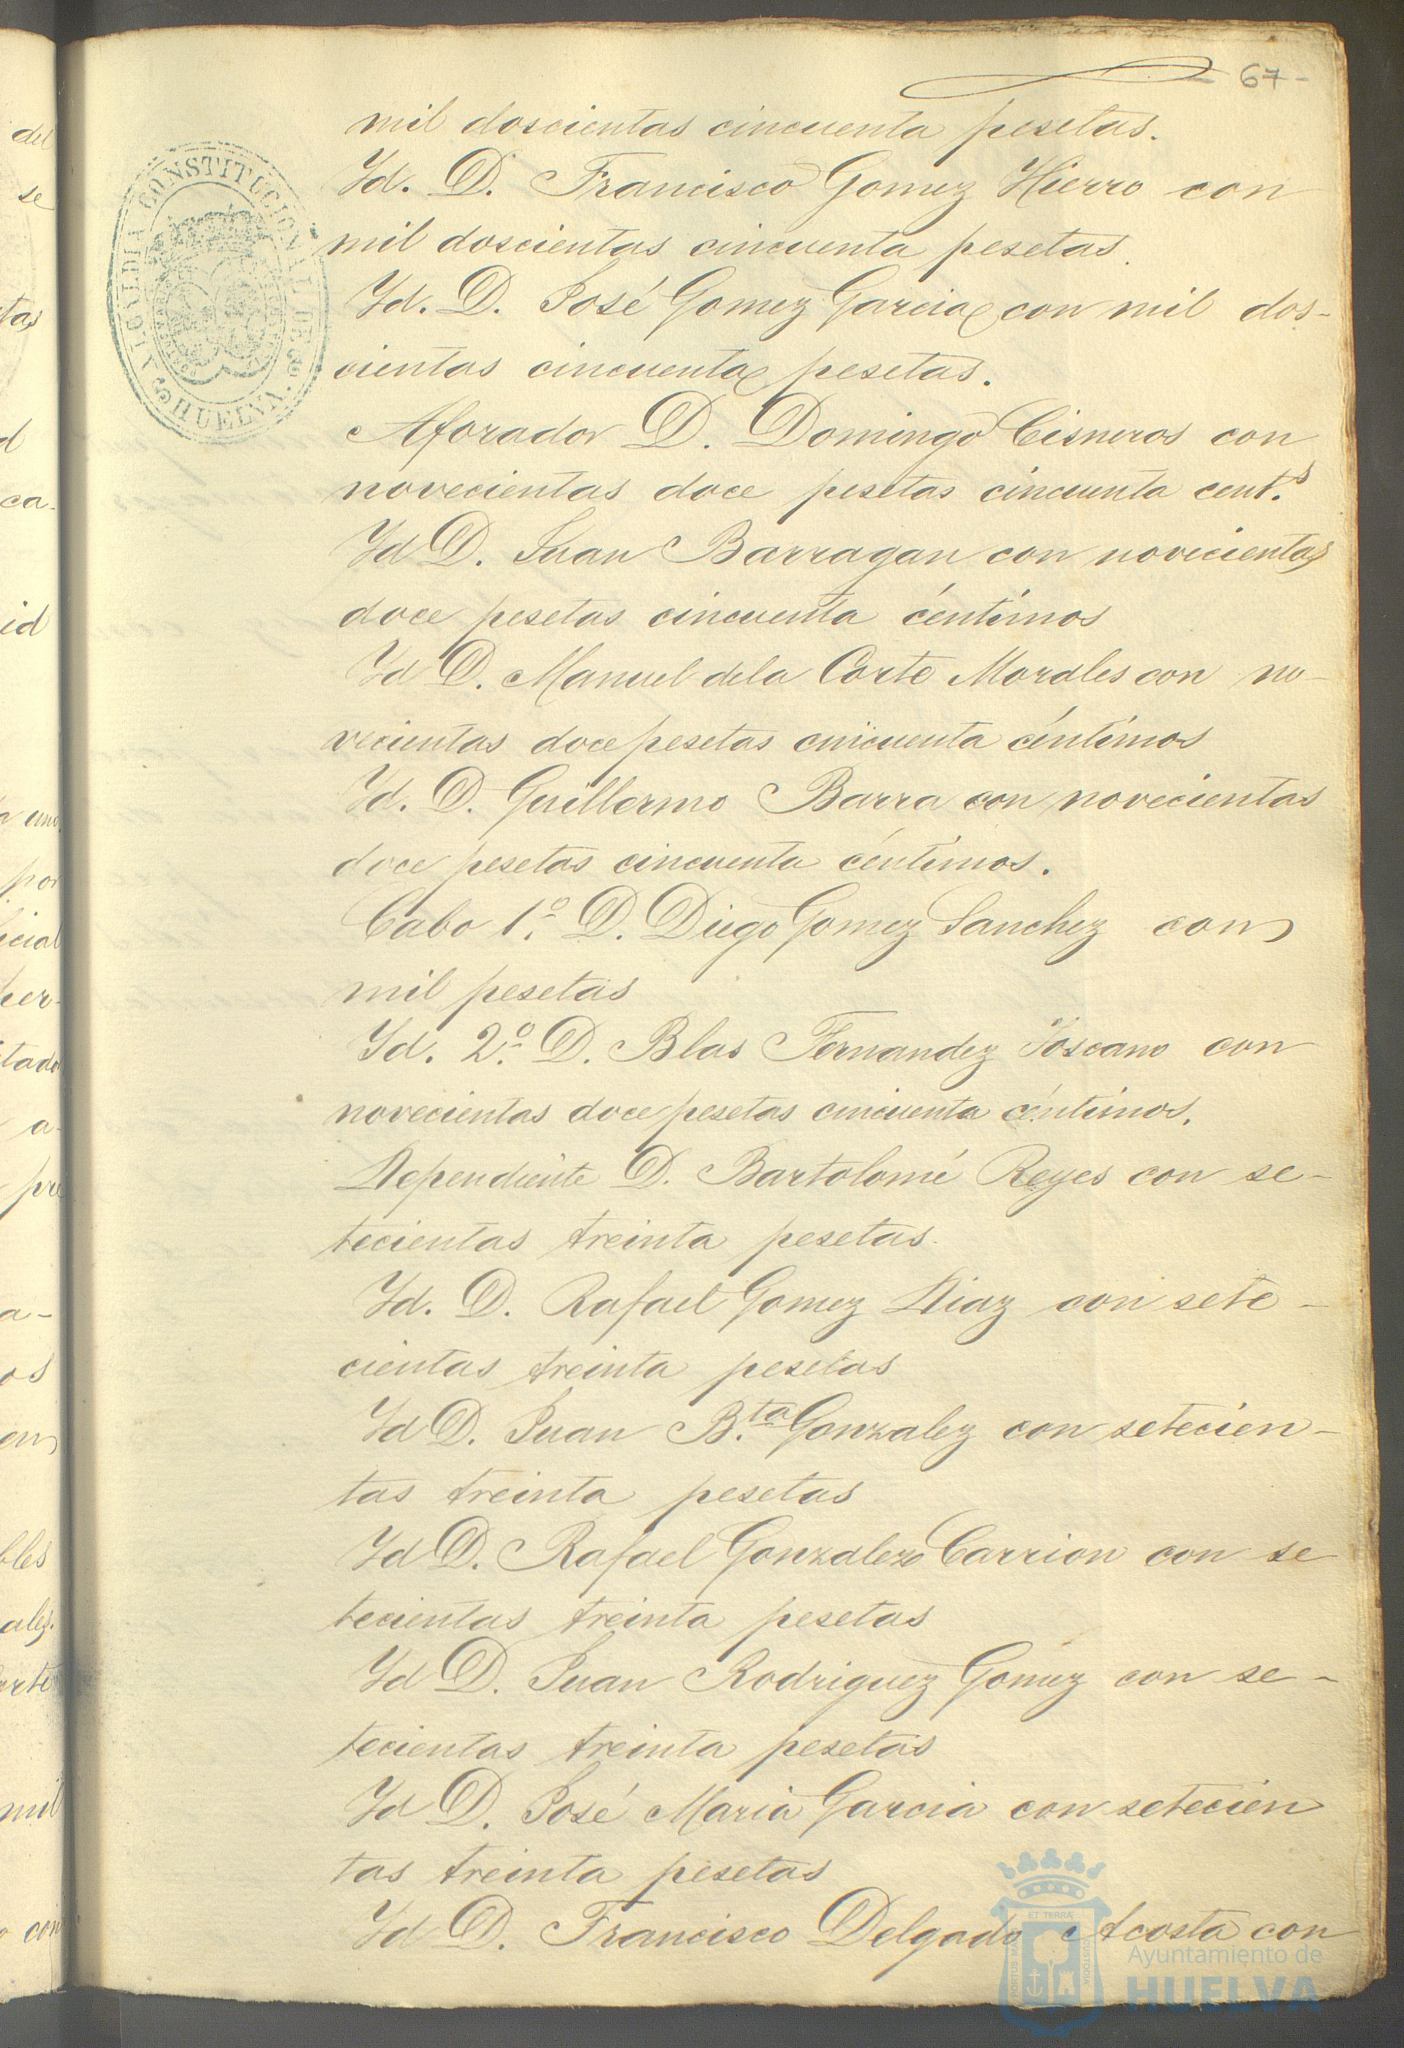 - 67 -
mil doscientas cincuenta pesetas.
Yd. D. Francisco Gomez Hierro con
mil doscientas cincuenta pesetas.
Yd. D. José Gomez Garcia con mil dos-
cientas cincuenta pesetas.
Aforador D. Domingo Cisneros con
novecientas doce pesetas cincuenta cent.s
Yd D. Juan Barragan con novecientas
doce pesetas cincuenta céntimos
Yd D. Manuel dela Corte Morales con no-
vecientas doce pesetas cincuenta céntimos
Yd. D. Guillermo Barra con novecientas
doce pesetas cincuenta céntimos.
Cabo 1.º D. Diego Gomez Sanchez con
mil pesetas
Yd. 2.º D. Blas Fernandez Toscano con
novecientas doce pesetas cincuenta céntimos.
Dependiente D. Bartolomé Reyes con se-
tecientas treinta pesetas.
Yd. D. Rafael Gomez Diaz con sete-
cientas treinta pesetas
Yd D. Juan B.ta Gonzalez con setecien-
tas treinta pesetas
Yd D. Rafael Gonzalez Carrion con se
tecientas treinta pesetas
Yd D. Juan Rodriguez Gomez con se-
tecientas treinta pesetas
Yd D. José Maria Garcia con setecien
tas treinta pesetas
Yd D. Francisco Delgado Acosta con
ALCALDIA CONSTITUCIONAL DE HUELVA
del
se
tas
ca-
id
por
icial
tado
a-
pre
a-
os
en
bles
mil
con
Ayuntamiento de
HUELVA